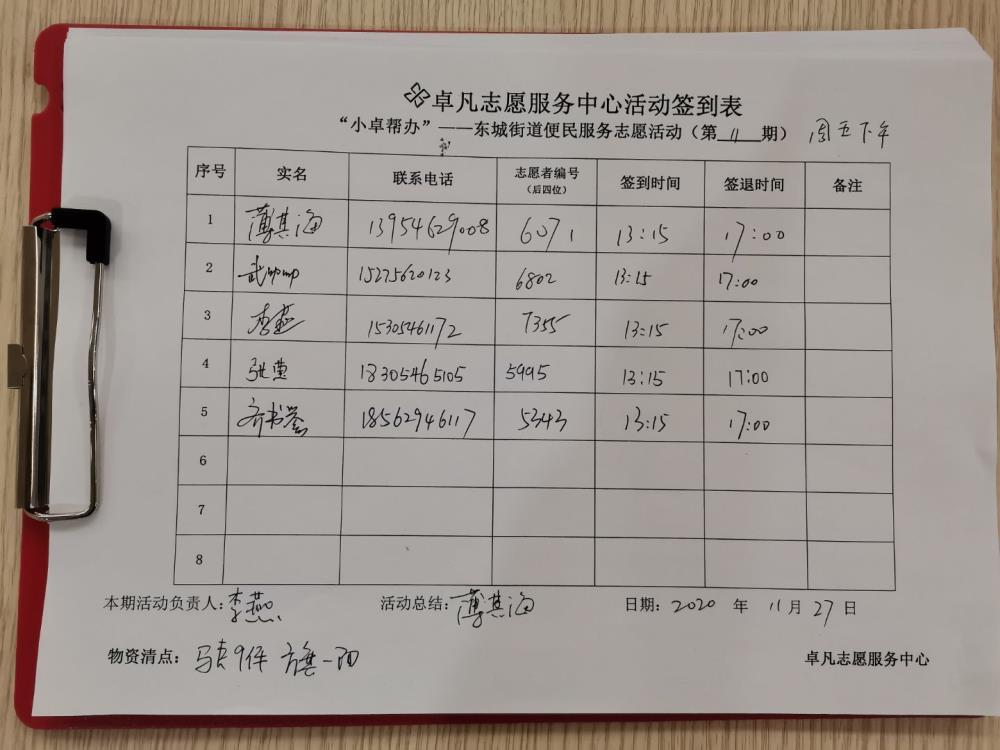 卓凡志愿服务中心活动签到表
“小卓帮办”——东城街道便民服务志愿活动（第 11 期） 周五下午
序号 实名 联系电话 志愿者编号（后四位） 签到时间 签退时间 备注
1 薄其海 13954629008 6071 13:15 17:00
2 武帅帅 15275620123 6802 13:15 17:00
3 李燕 15305461172 7355 13:15 17:00
4 张莹 18305465105 5995 13:15 17:00
5 齐书誉 18562946117 5343 13:15 17:00
6
7
8
本期活动负责人：李燕 活动总结：薄其海 日期：2020 年 11 月 27 日
物资清点：马夹9件 旗一 卓凡志愿服务中心